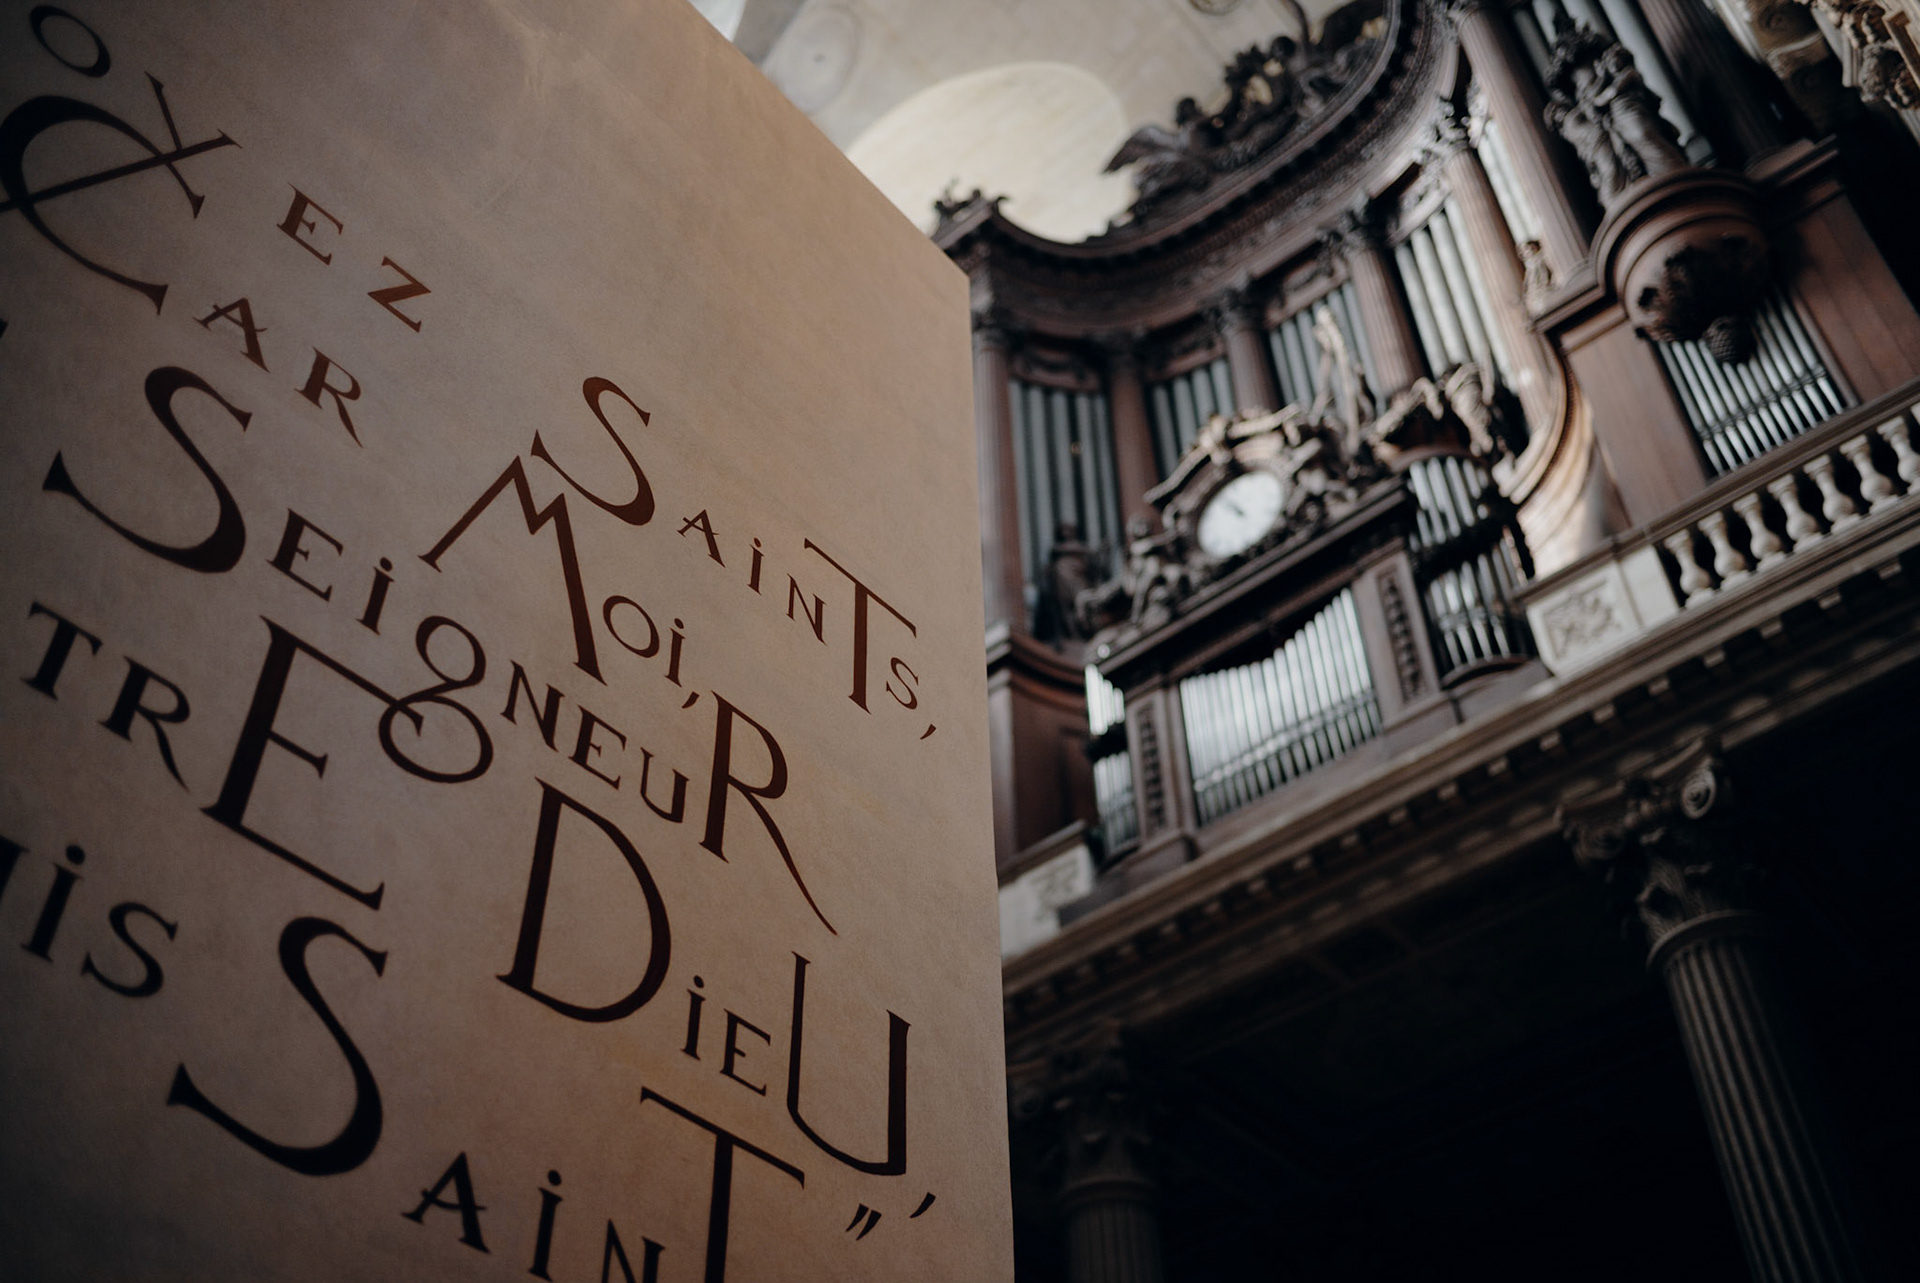 OYEZ SAiNTS,
CAR MOi,
SEiGNEUR
TRE DiEU,
iS SAiNT”